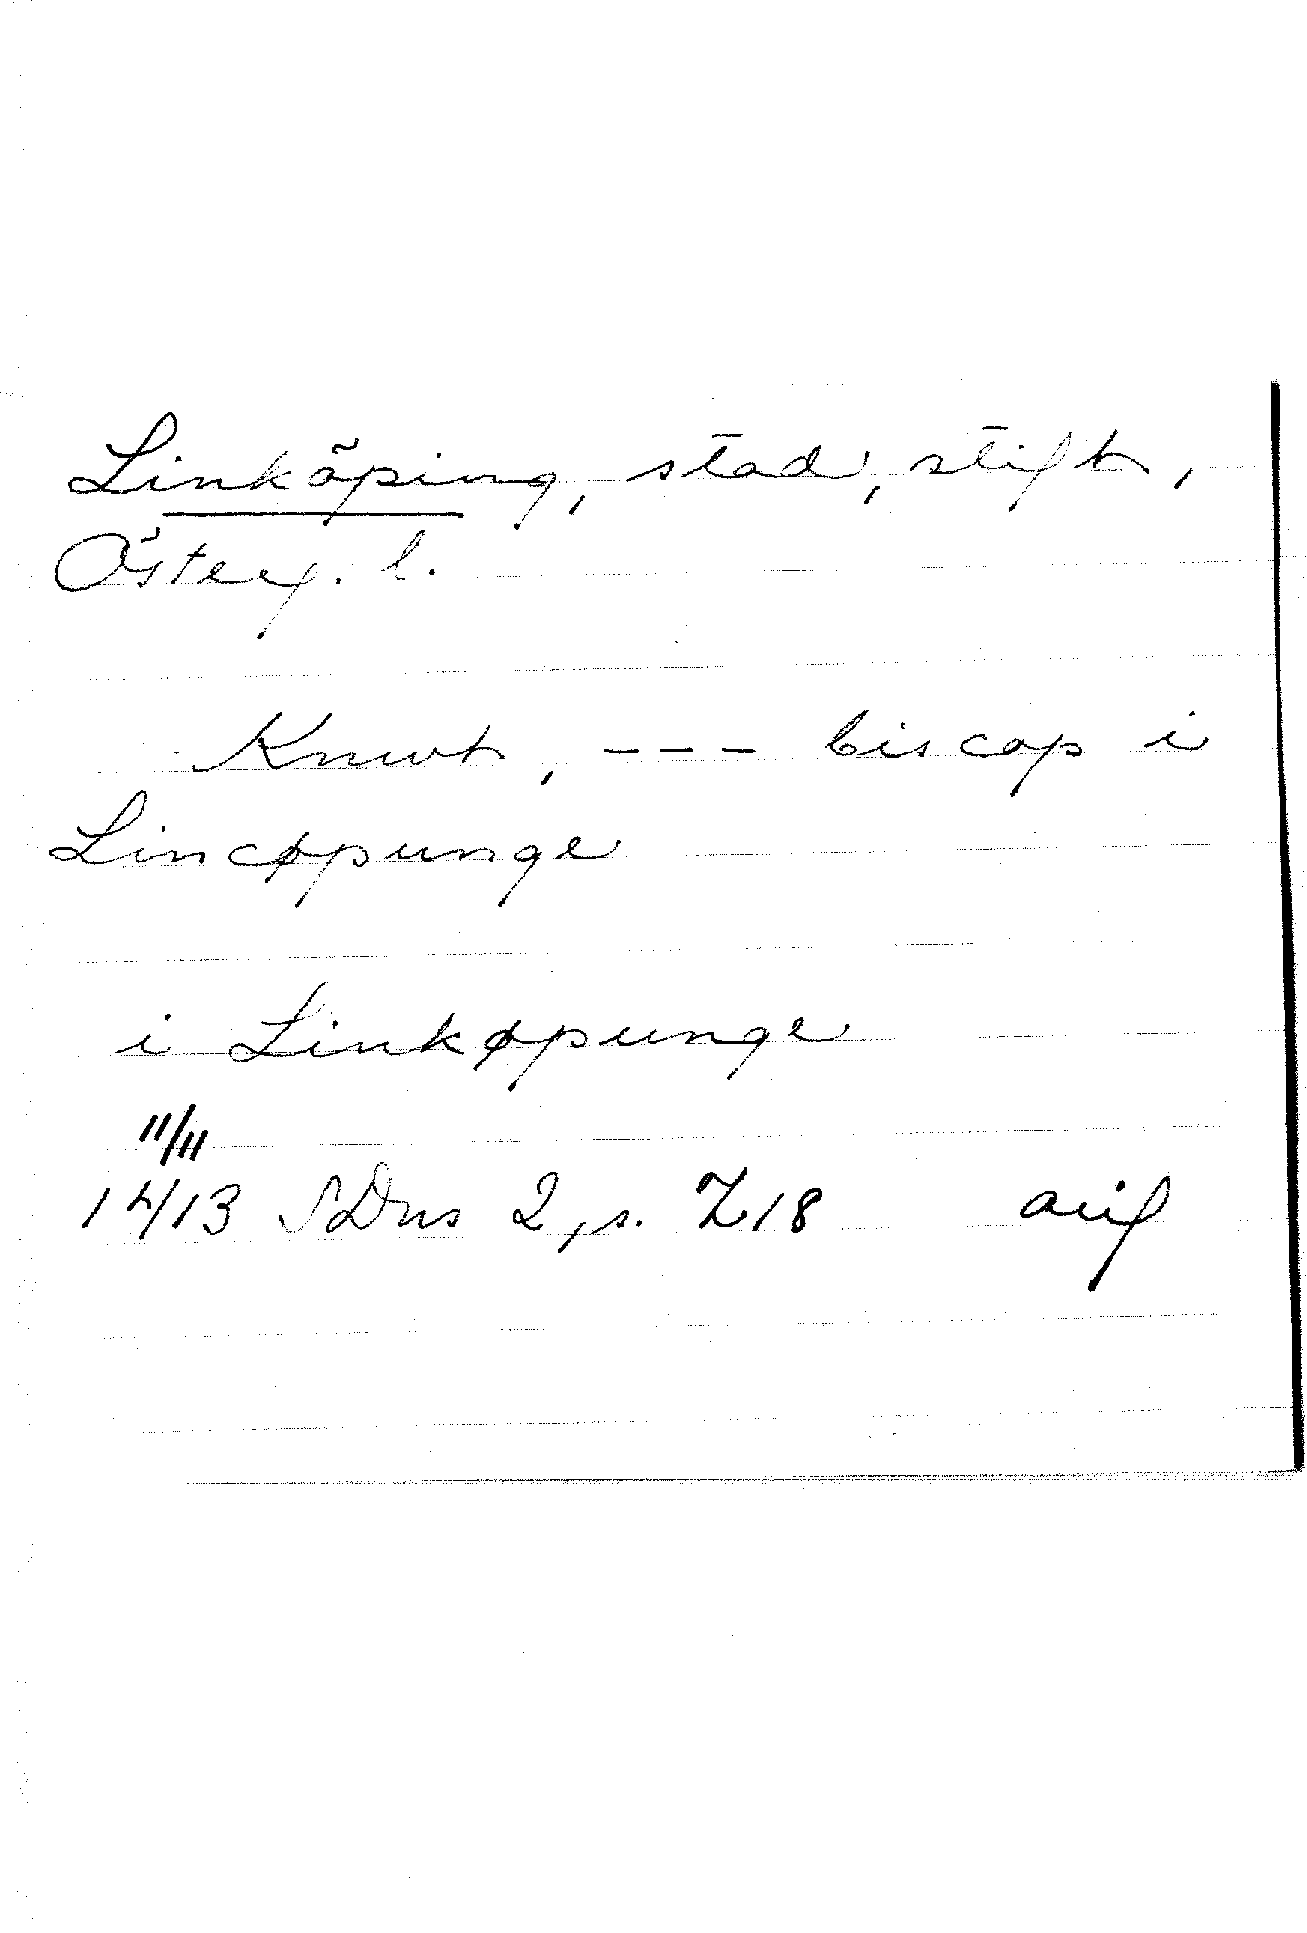 Linköping, stad, stift,
Österg. l.
Knwt, --- biscop i
Lincøpunge
i Linkøpunge
11/11
1413 SDns 2, s. 718 avsl